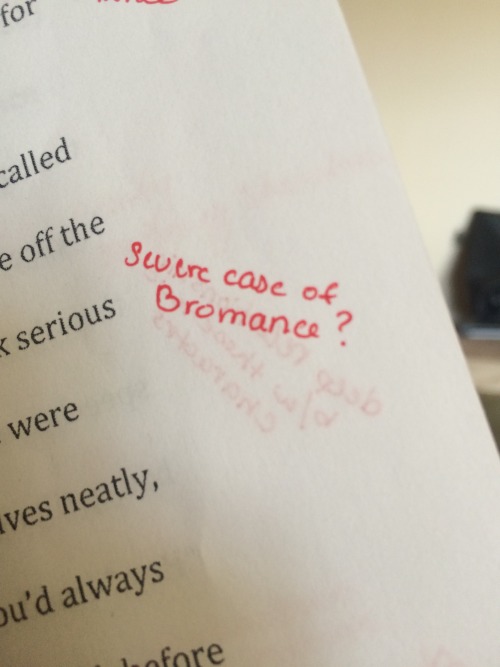 for
called
e off the
Severe case of
Bromance?
k serious
were
lves neatly,
ou'd always
before